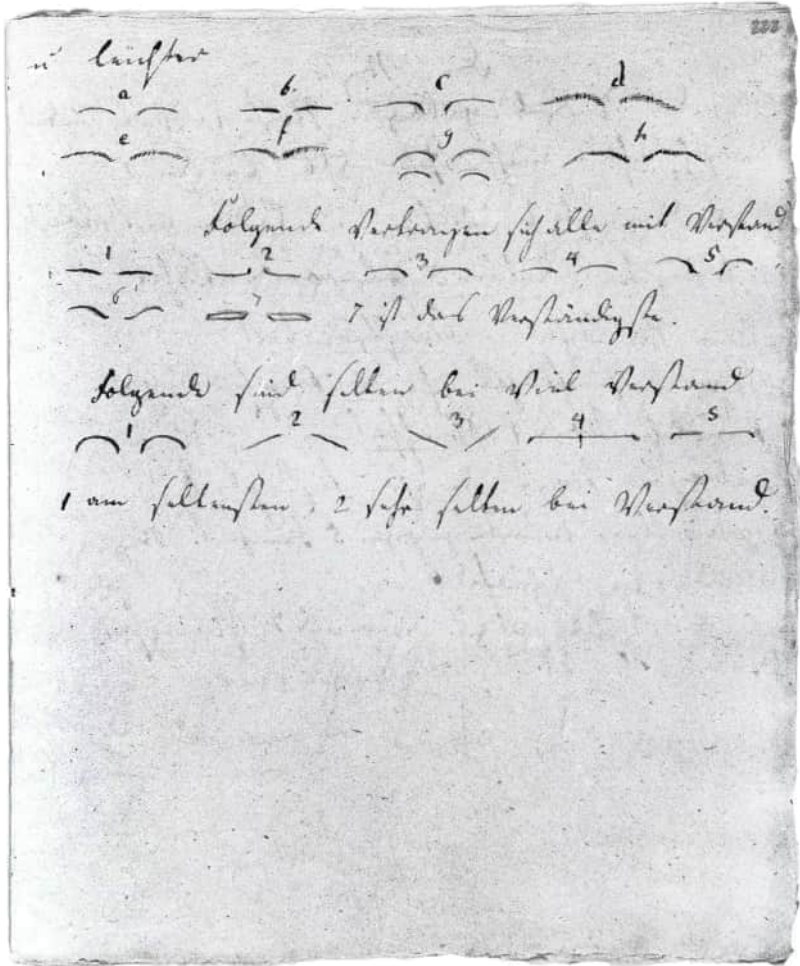 u leichter
a b. c d
e f g h
Folgende Vertragen sich alle mit Verstand
1 2 3 4 5
6 7 7 ist das Verständigste.
Folgende sind selten bei Viel Verstand
1 2 3 4 5
1 am seltensten, 2 sehr selten bei Verstand.